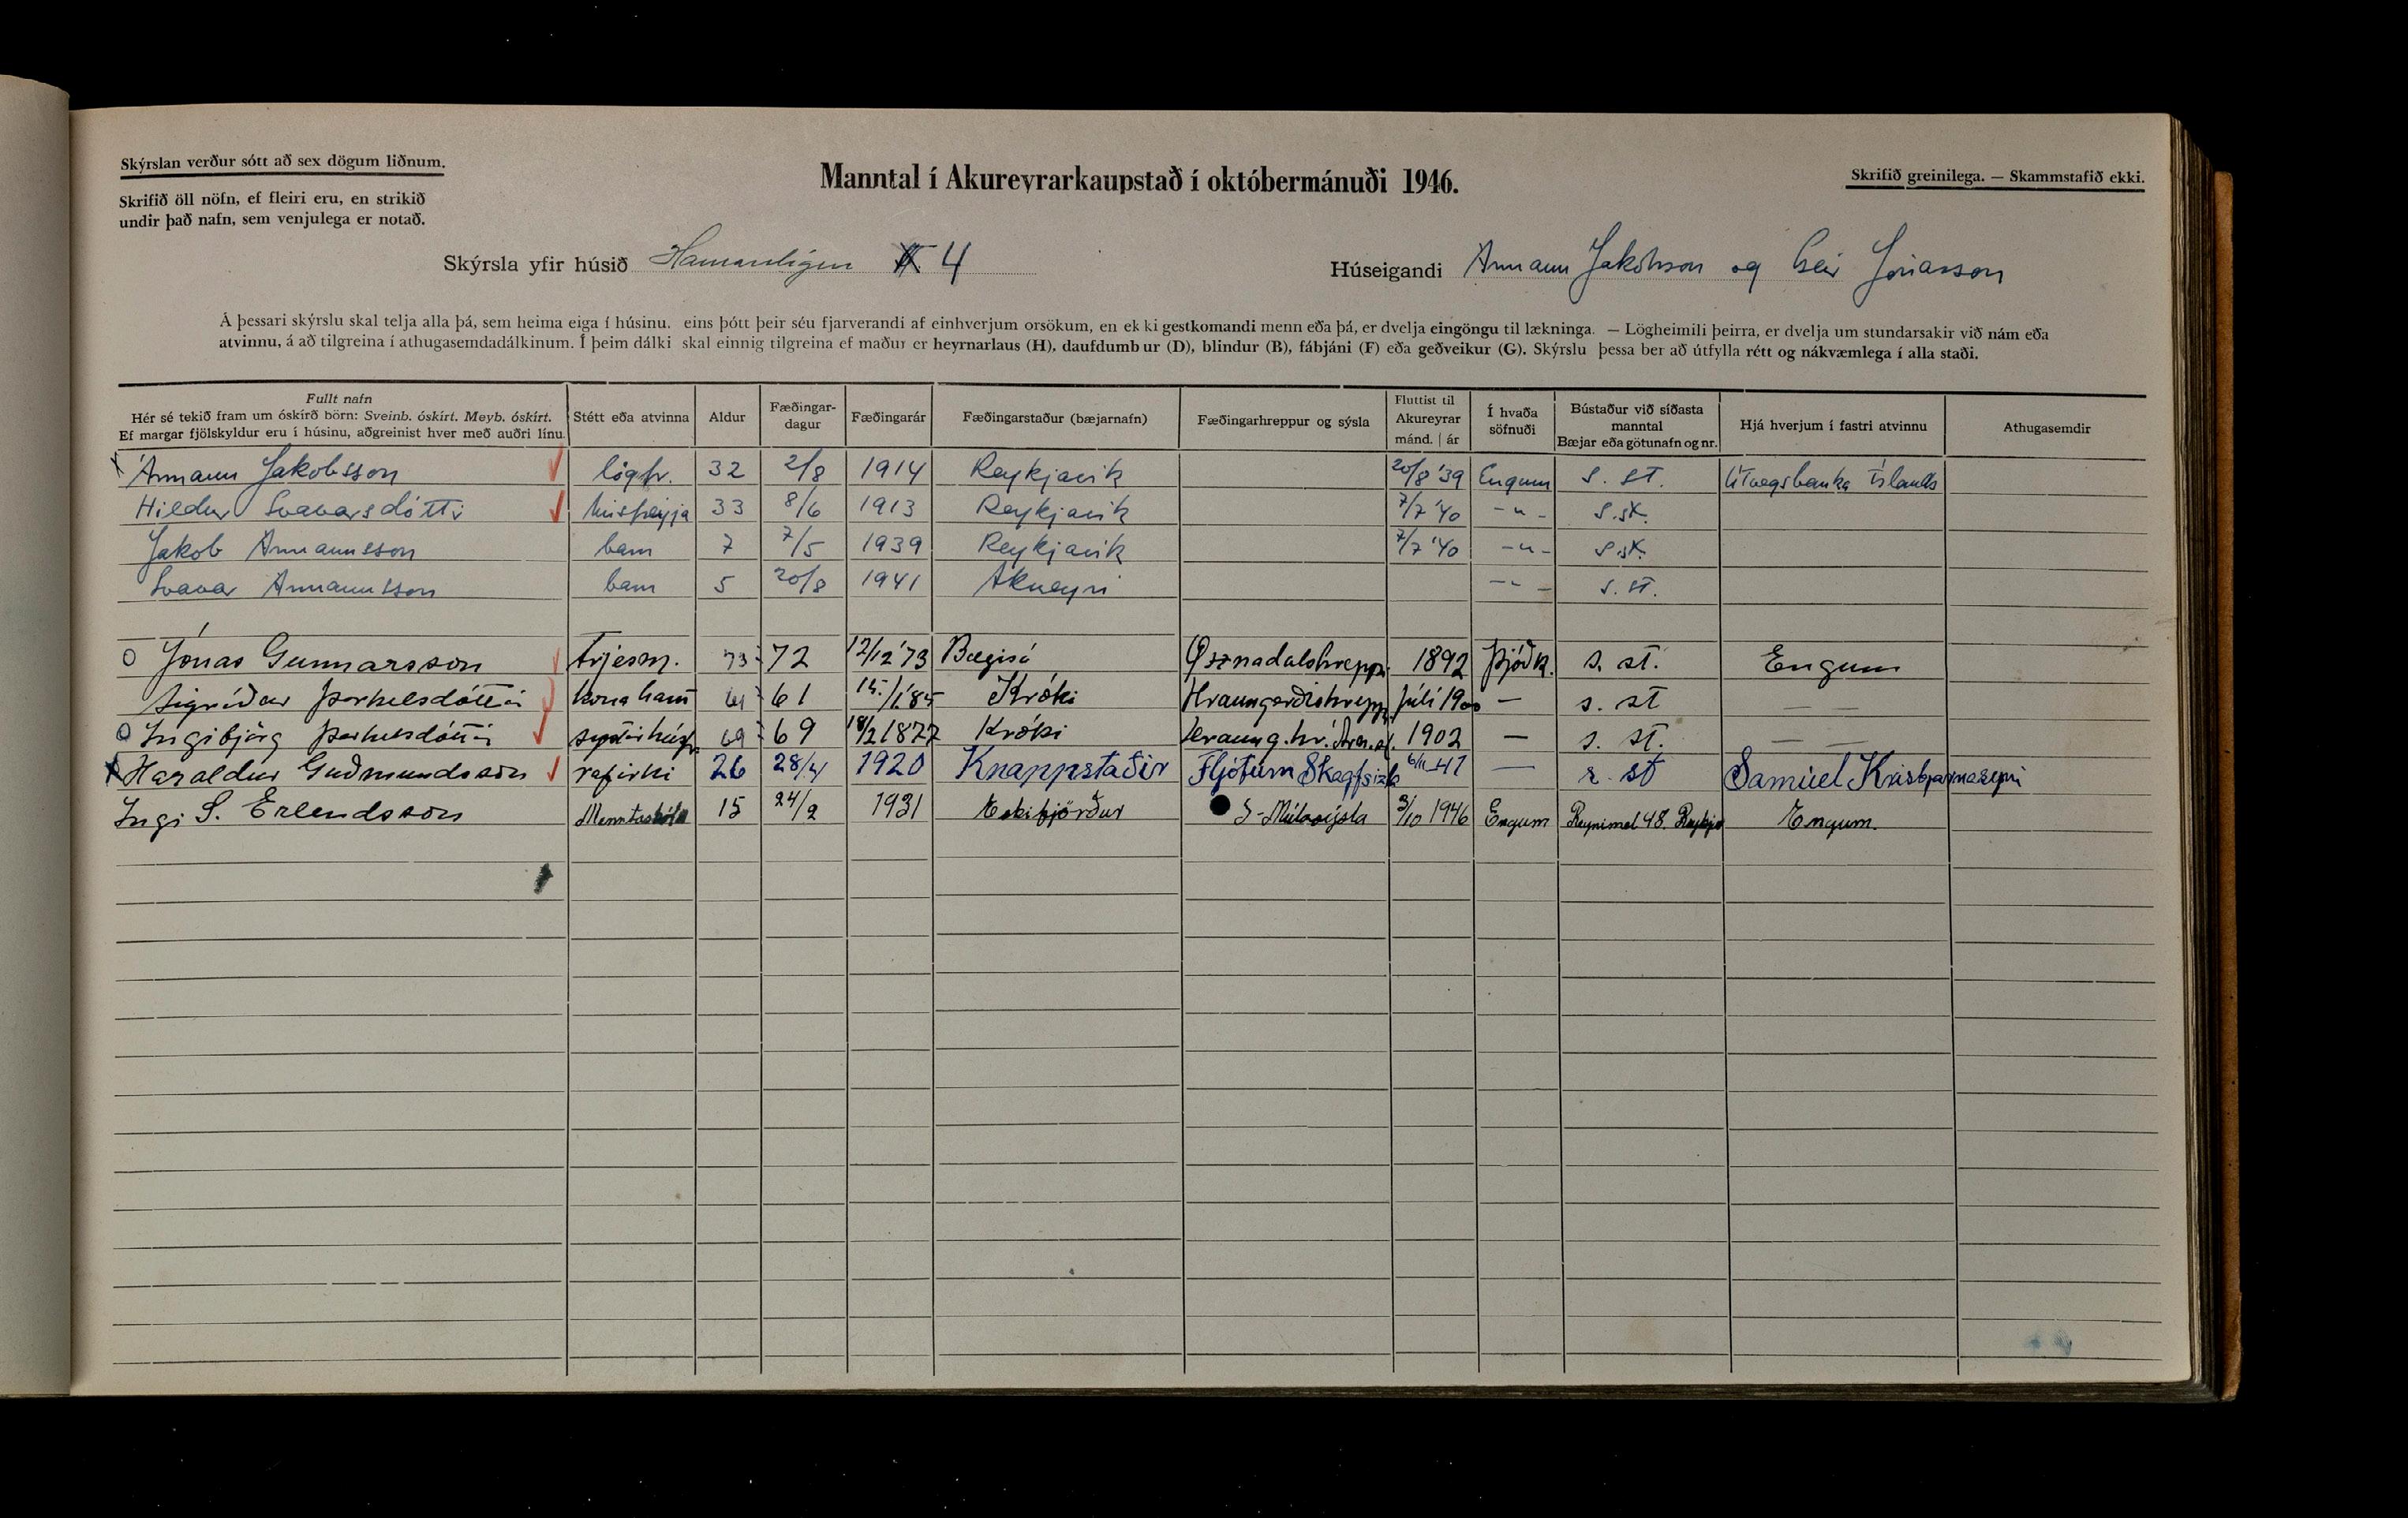 Skýrslan verður sótt að sex dögum liðnum.
Skrifið öll nöfn, ef fleiri eru, en strikið
undir það nafn, sem venjulega er notað.
Manntal í Akureyrarkaupstað í októbermánuði 1946.
Skrifið greinilega. — Skammstafið ekki.
Skýrsla yfir húsið Hamarstígur 4
Húseigandi Ármann Jakobsson og Geir Jónasson
Á þessari skýrslu skal telja alla þá, sem heima eiga í húsinu, eins þótt þeir séu fjarverandi af einhverjum orsökum, en ekki gestkomandi menn eða þá, er dvelja eingöngu til lækninga. — Lögheimili þeirra, er dvelja um stundarsakir við nám eða
atvinnu, á að tilgreina í athugasemdadálkinum. Í þeim dálki skal einnig tilgreina ef maður er heyrnarlaus (H), daufdumbur (D), blindur (B), fábjáni (F) eða geðveikur (G). Skýrslu þessa ber að útfylla rétt og nákvæmlega í alla staði.
Fullt nafn Hér sé tekið fram um óskírð börn: Sveinb. óskírt. Meyb. óskírt. Ef margar fjölskyldur eru í húsinu, aðgreinist hver með auðri línu. Stétt eða atvinna Aldur Fæðingardagur Fæðingarár Fæðingarstaður (bæjarnafn) Fæðingarhreppur og sýsla Fluttist til Akureyrar mánd. | ár Í hvaða söfnuði Bústaður við síðasta manntal Bæjar eða götunafn og nr. Hjá hverjum í fastri atvinnu Athugasemdir
Ármann Jakobsson lögfr. 32 2/8 1914 Reykjavík 20/8 '39 Engum s. st. Útvegsbanka Íslands
Hildur Svavarsdóttir húsfreyja 33 8/6 1913 Reykjavik 7/7 '40 -"- s.st.
Jakob Ármannsson barn 7 7/5 1939 Reykjavik 7/7 '40 -"- s.st.
Svavar Ármannsson barn 5 20/8 1941 Akureyri -"- s. st.
Jónas Gunnarsson 73 72 12/12 '73 Bægisá Öxnadalshrepp. 1892 Þjóðk. s. st. Engum
Sigríður Þorkelsdóttir kona hans 61 61 15/1 '85 Króki Hraungerðishrepp. júlí 1900 — s. st — —
Ingibjörg Þorkelsdóttir systir húsfr. 69 69 18/2 1877 Króki Hraung.hr. Árn.s. 1902 — s. st. — —
Haraldur Guðmundsson rafvirki 26 28/4 1920 Knappstaðir Fljótum Skagf.sýsla 6/11-41 — s. st Samúel Kristbjarnarsyni
Ingi S. Erlendsson Menntaskóla 15 24/2 1931 Eskifjörður S-Múlasýsla 3/10 1946 Engum Reynimel 48. Reykjav Engum.